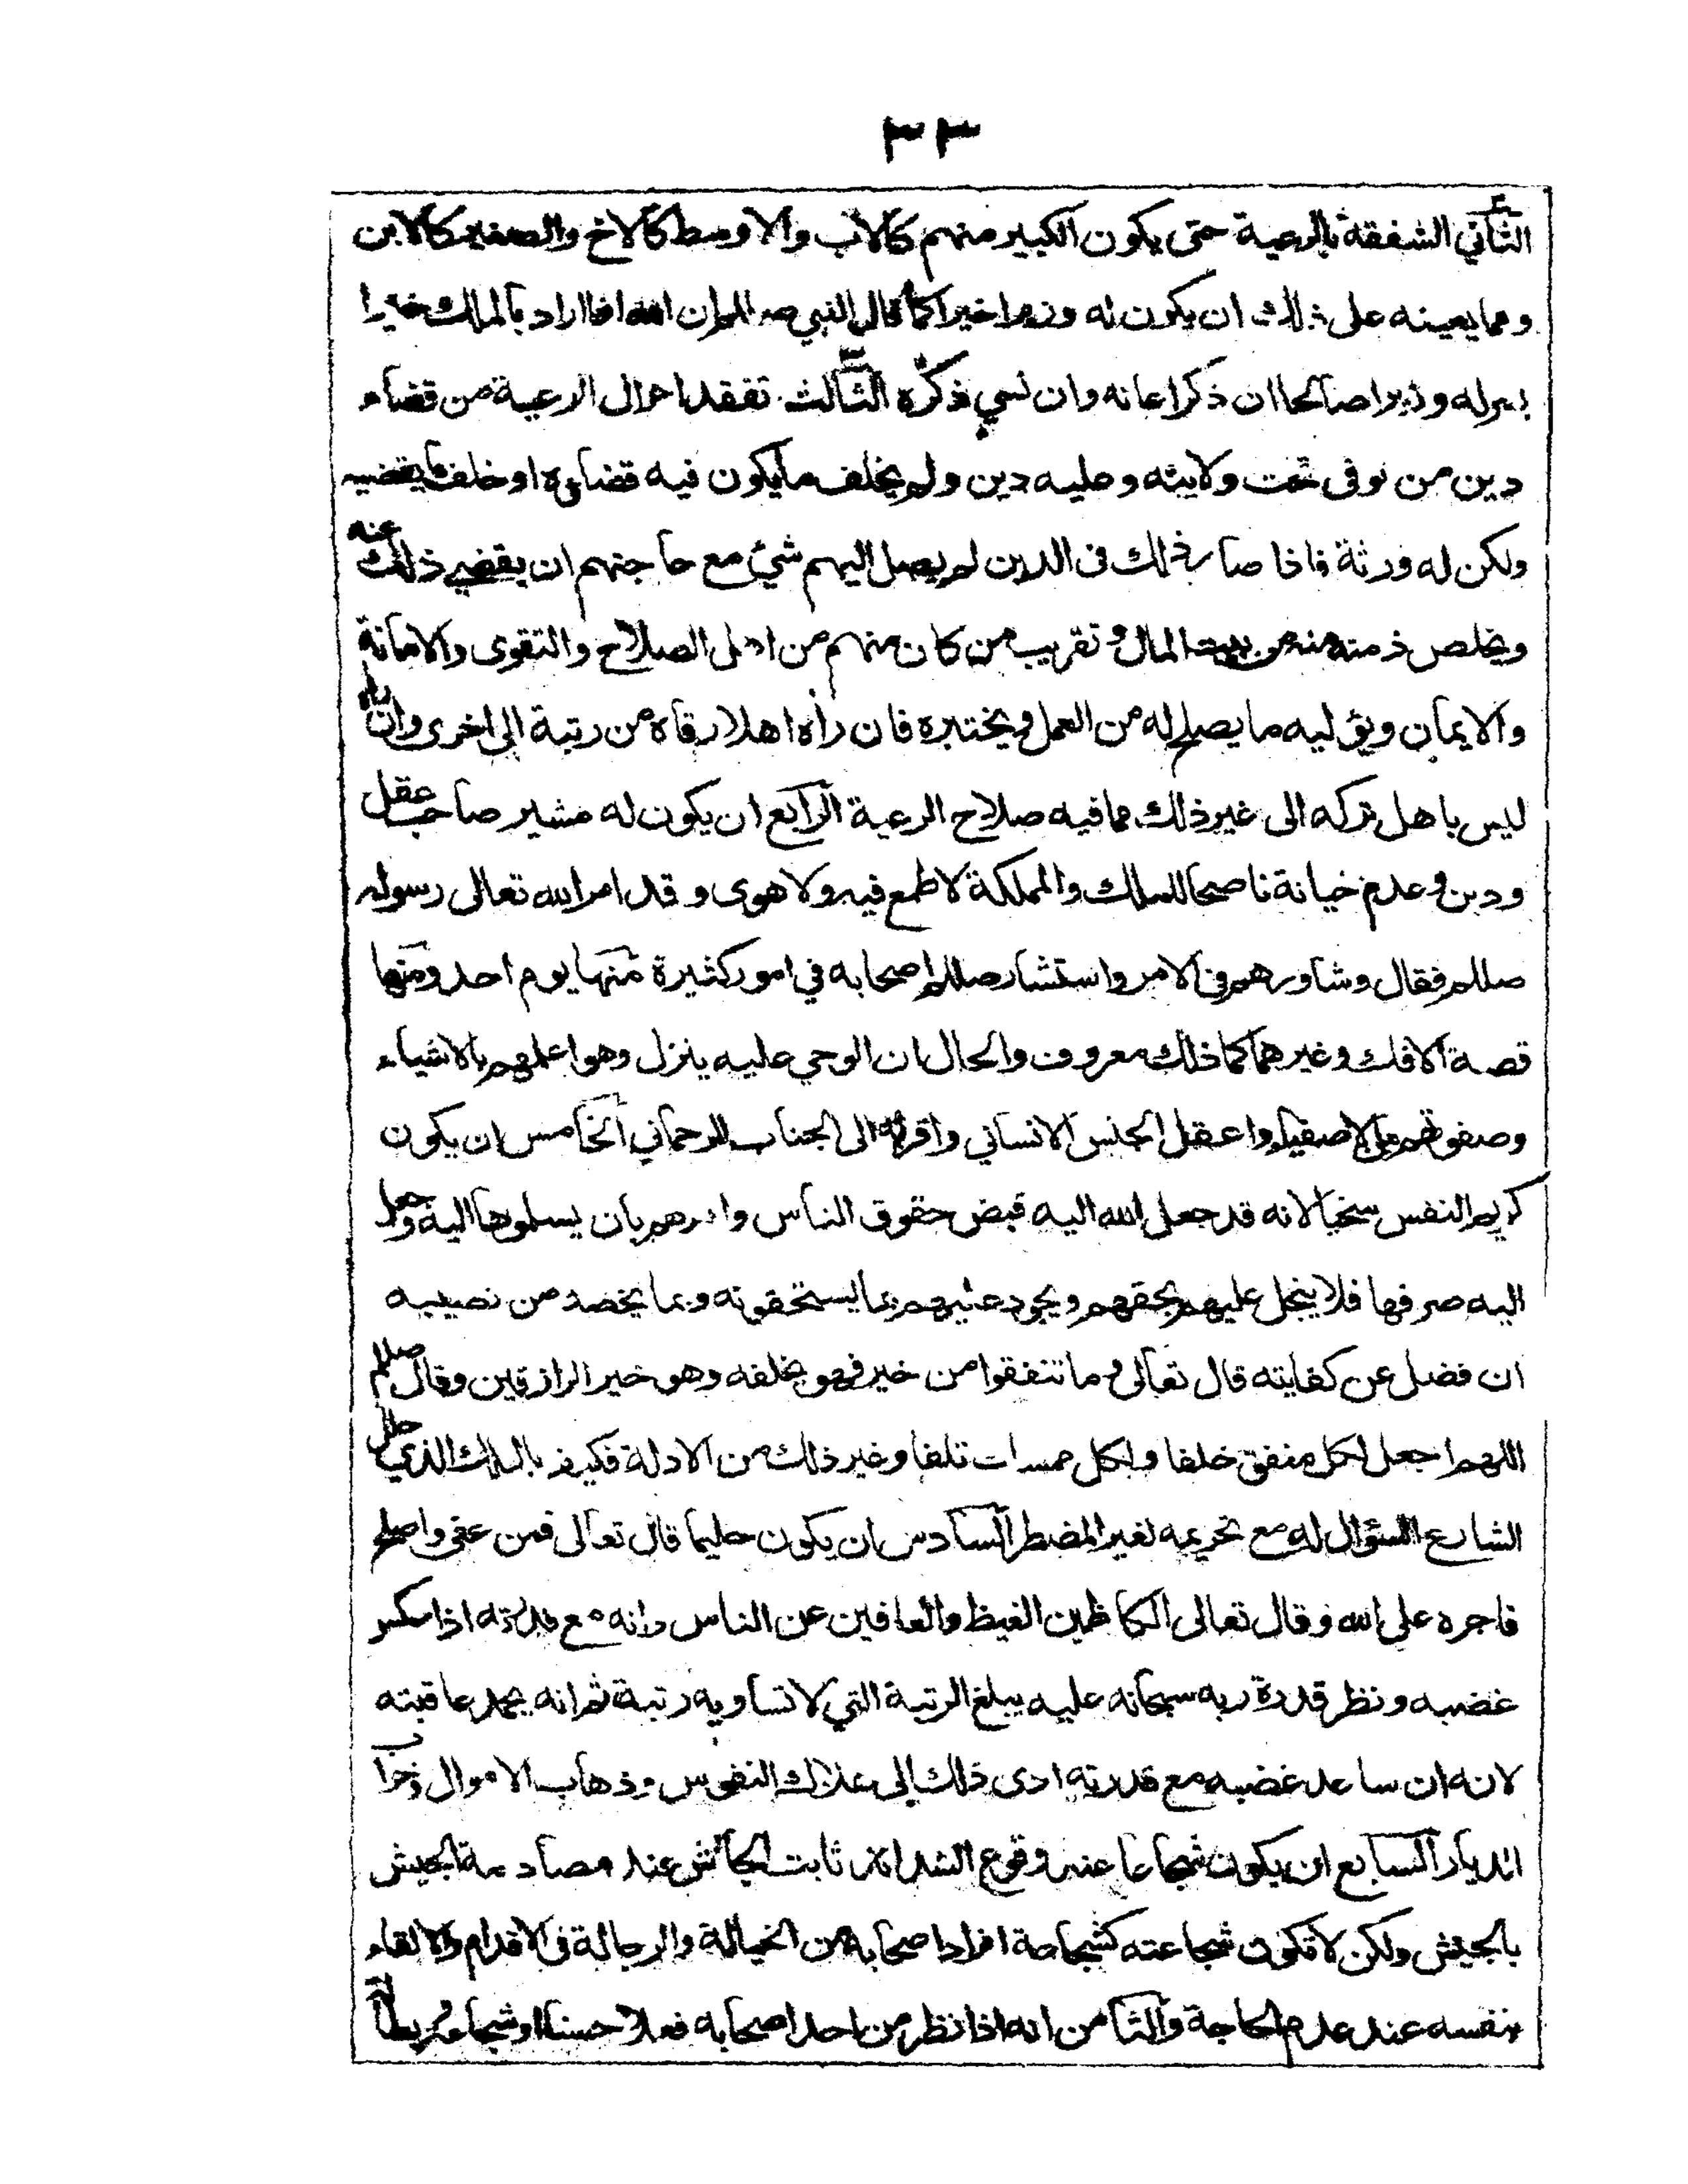 ٣٣
الثاني الشفقة بالرعية حتى يكون الكبير منهم كالاب والاوسط كالاخ والصغير كالابن
ومما يعينه على ذلك ان يكون له وزيرا خيرا كما قال النبي صلعم ان الله اذا اراد بالملك خيرا
يسر له وزيرا صالحا ان ذكر اعانه وان نسي ذكره الثالث تفقد احوال الرعية من قضاء
دين من توفى تحت ولايته وعليه دين ولم يخلف ما يكون فيه قضاءه او خلف ما يقضيه
ولكن له ورثة فاذا صار ذلك في الدين لم يصل اليهم شئ مع حاجتهم ان يقضي ذلك عنه
ويخلص ذمته منه من بيت المال وتقريب من كان منهم من اهل الصلاح والتقوى والامانة
والايمان ويؤليه ما يصلح له من العمل ويختبره فان رأه اهلا رقاه من رتبة الى اخرى وان راه
ليس باهل تركه الى غير ذلك مما فيه صلاح الرعية الرابع ان يكون له مشير صاحب عقل
ودين وعدم خيانة ناصحا للملك والمملكة لا طمع فيه ولا هوى وقد امر الله تعالى رسوله
صللم فقال وشاورهم في الامر واستشار صللم اصحابه في امور كثيرة منها يوم احد ومنها
قصة الافك وغيرهما كما ذلك معروف والحال ان الوحي عليه ينزل وهو اعلمهم بالاشياء
وصفوتهم على الاصفياء واعقل الجنس الانساني واقربه الى الجناب الرحماني الخامس ان يكون
كريم النفس سخيا لانه قد جعل الله اليه قبض حقوق الناس وامرهم بان يسلموها اليه وجعل
اليه صرفها فلا يبخل عليهم بحقهم ويجود عليهم بما يستحقونه وبما يخصه من نصيبه
ان فضل عن كفايته قال تعالى وما تنفقوا من خير فهو يخلفه وهو خير الرازقين وقال صللم
اللهم اجعل لكل منفق خلفا ولكل ممسك تلفا وغير ذلك من الادلة فكيف بالملك الذي حلل
الشارع السؤال له مع تحريمه لغير المضطر السادس ان يكون حليما قال تعالى فمن عفى واصلح
فاجره على الله وقال تعالى الكاظمين الغيظ والعافين عن الناس وانه مع قدرته اذا كسر
غضبه ونظر قدرة ربه سبحانه عليه يبلغ الرتبة التي لا تساويه رتبة ثم انه يحمد عاقبته
لانه ان ساعد غضبه مع قدرته ادى ذلك الى هلاك النفوس وذهاب الاموال وخراب
الديار السابع ان يكون شجاعا عند وقوع الشدائد ثابت الجأش عند مصادمة الجيش
بالجيش ولكن لا تكون شجاعته كشجاعة افراد اصحابه من الخيالة والرجالة في الاقدام والالقاء
بنفسه عند عدم الحاجة والثامن انه اذا نظر من احد اصحابه فعلا حسنا او شجاعة